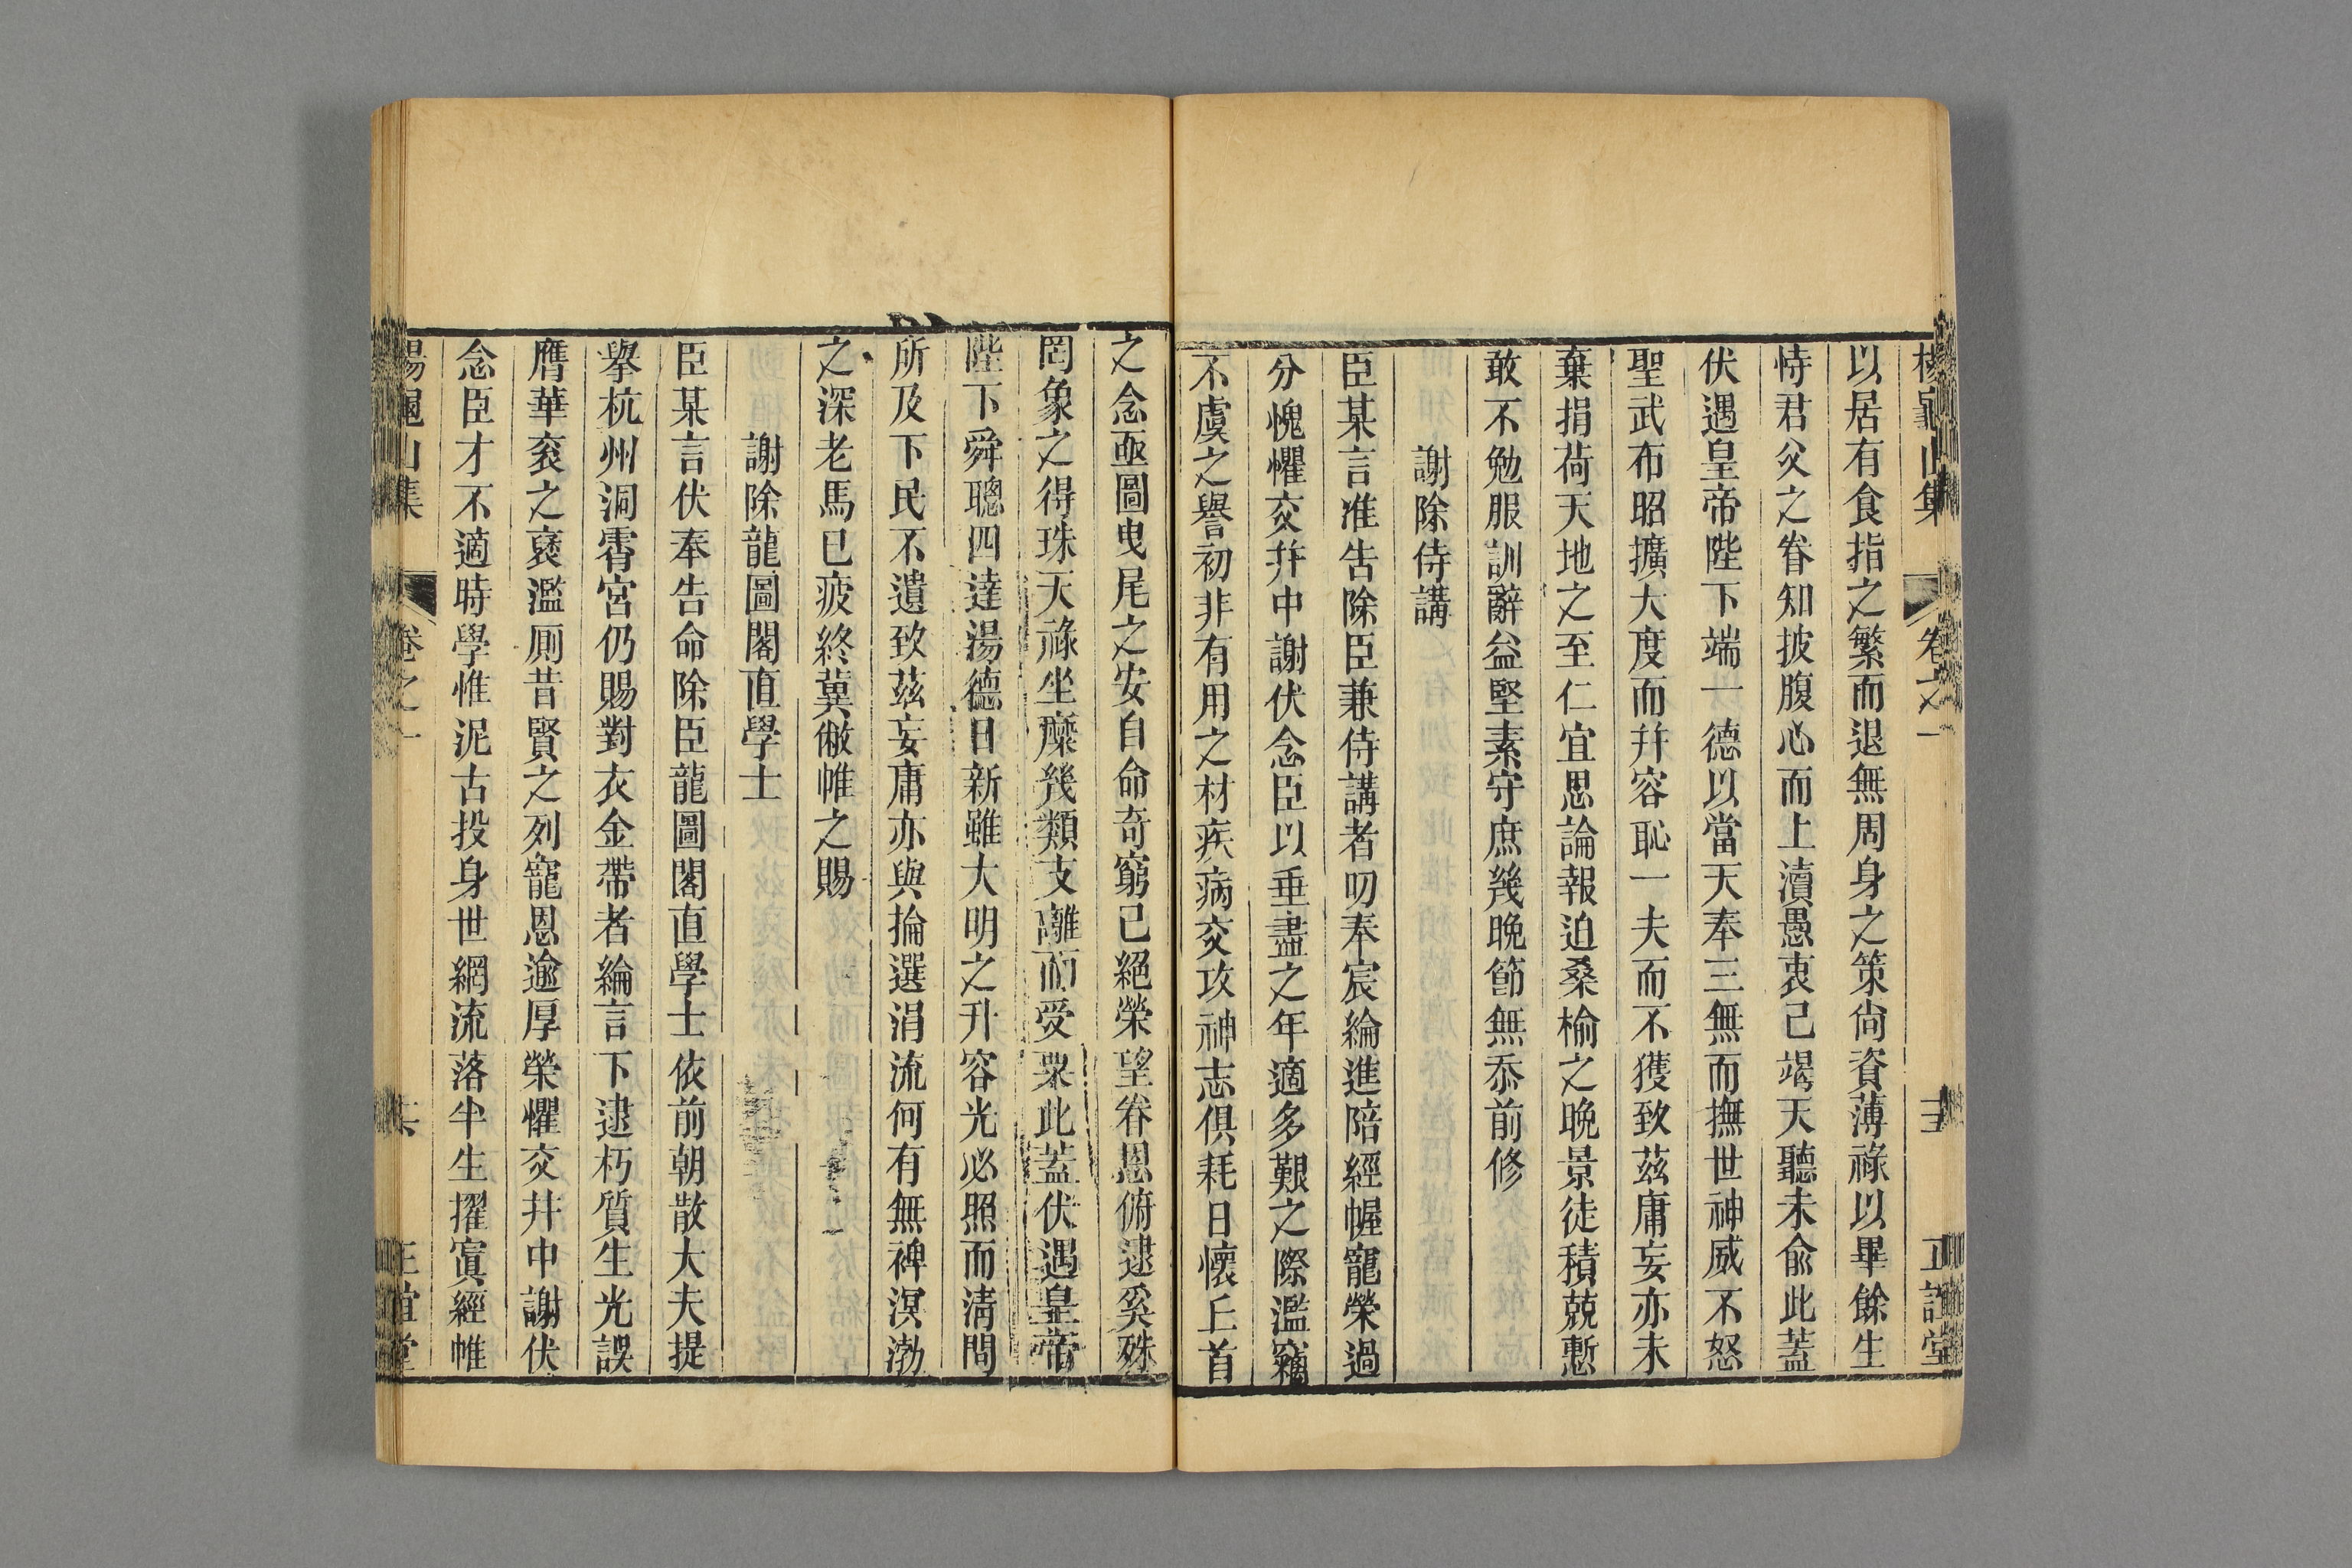 楊龜山集 卷之一 正誼堂
以居有食指之繁而退無周身之策尙資薄祿以畢餘生
恃君父之眷知披腹心而上瀆愚衷已竭天聽未兪此蓋
伏遇皇帝陛下端一德以當天奉三無而撫世神威不怒
聖武布昭擴大度而幷容恥一夫而不獲致茲庸妄亦未
棄捐荷天地之至仁宜思論報迫桑榆之晚景徒積兢慙
敢不勉服訓辭益堅素守庶幾晚節無忝前修
謝除侍講
臣某言准吿除臣兼侍講者叨奉宸綸進陪經幄寵榮過
分愧懼交幷中謝伏念臣以垂盡之年適多艱之際濫竊
不虞之譽初非有用之材疾病交攻神志俱耗日懷丘首
之念亟圖曳尾之安自命奇窮已絕榮望眷恩俯逮奚殊
罔象之得珠天祿坐糜幾類支離而受粟此蓋伏遇皇帝
陛下舜聰四達湯德日新雖大明之升容光必照而淸問
所及下民不遺致茲妄庸亦與掄選涓流何有無裨溟渤
之深老馬已疲終冀敝帷之賜
謝除龍圖閣直學士
臣某言伏奉告命除臣龍圖閣直學士依前朝散大夫提
擧杭州洞霄宮仍賜對衣金帶者綸言下逮朽質生光誤
膺華袞之襃濫厠昔賢之列寵恩逾厚榮懼交幷中謝伏
念臣才不適時學惟泥古投身世網流落半生擢寘經帷
楊龜山集 卷之一 正誼堂